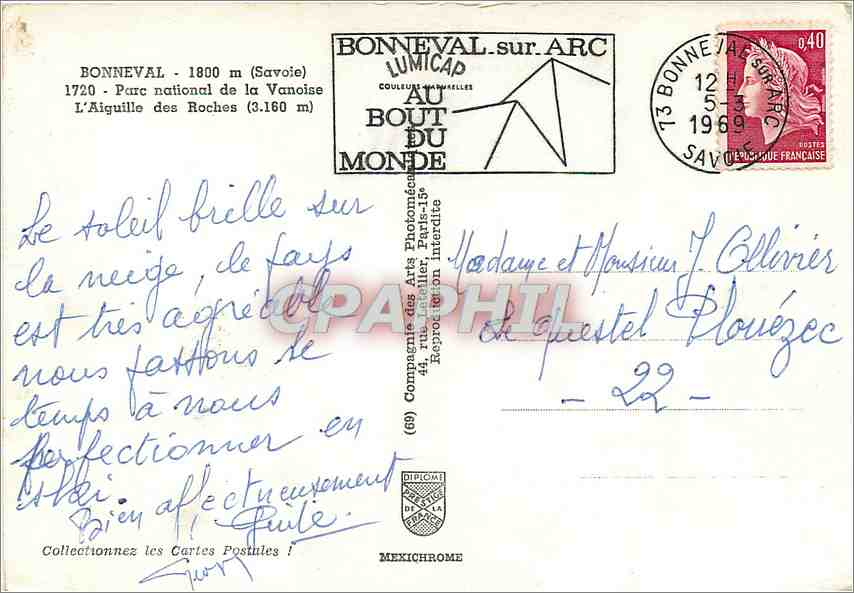 BONNEVAL - 1800 m (Savoie)
1720 - Parc national de la Vanoise
L'Aiguille des Roches (3.160 m)
BONNEVAL-sur-ARC
LUMICAP
COULEURS NATURELLES
AU
BOUT
DU
MONDE
73 BONNEVAL sur ARC
12 H
5-3
1969
SAVOIE
0,40
POSTES
RÉPUBLIQUE FRANÇAISE
Le soleil brille sur
la neige, le pays
est très agréable
nous passons le
temps à nous
perfectionner en
ski.
Bien affectueusement
Collectionnez les Cartes Postales !
(69) Compagnie des Arts Photomécaniques
44, rue Letellier, Paris-15e
Reproduction interdite
CPAPHIL
Madame et Monsieur J Ollivier
Le Questel Plouézec
- 22 -
DIPLOME
PRESTIGE
DE LA
FRANCE
MEXICHROME